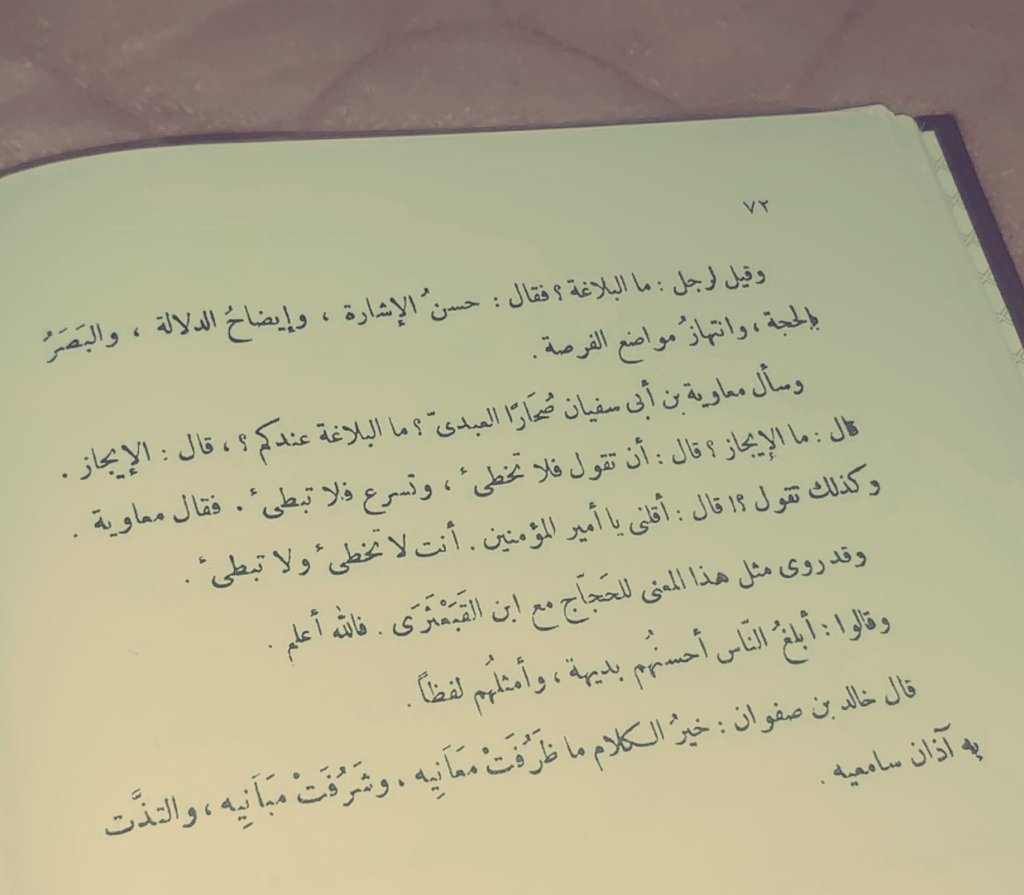 ٧٢
وقيل لرجل : ما البلاغة ؟ فقال : حسنُ الإشارة ، وإيضاحُ الدلالة ، والبَصَرُ
بالحجة ، وانتهازُ مواضع الفرصة .
وسأل معاوية بن أبى سفيان صُحَارًا العبدىّ ؟ ما البلاغة عندكم ؟ ، قال : الإيجاز .
قال : ما الإيجاز ؟ قال : أن تقول فلا تخطىء ، وتسرع فلا تبطىء . فقال معاوية .
وكذلك تقول ؟! قال : أقلنى يا أمير المؤمنين . أنت لا تخطىء ولا تبطىء .
وقد روى مثل هذا المعنى للحَجاّج مع ابن القَبَعْثَرَى . فالله أعلم .
وقالوا : أبلغُ النّاس أحسنُهم بديهة ، وأمثلُهم لفظاً .
قال خالد بن صفوان : خيرُ الكلام ما ظَرُفَتْ مَعَانِيه ، وشَرُفَتْ مبَاَنِيه ، والتذَّت
به آذان سامعيه .